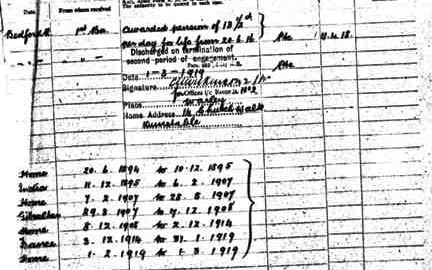 From whom received
Bedford R. 1st Bn. Awarded pension of 13½d
per day for life from 20.6.16
Discharged on termination of
second period of engagement.
Date 1-3-1919
Signature
for Officer i/c Records No 2
Place Warley
Home Address 14 Church Walk
Dunstable
Home 20. 6. 1894 to 10. 12. 1895
India 11. 12. 1895 to 6. 2. 1907
Home 7. 2. 1907 to 28. 8. 1907
Gibraltar 29. 8. 1907 to 7. 12. 1908
Home 8. 12. 1908 to 2. 12. 1914
France 3. 12. 1914 to 31. 1. 1919
Home 1. 2. 1919 to 1. 3. 1919